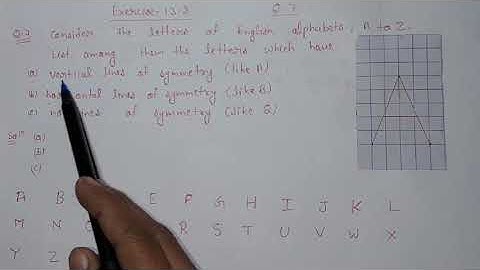 Exercise 13.3 Q.7
Q.7 Consider The letters of English alphabets, A to Z.
List among them the letters which have
(a) vertical lines of symmetry (like A)
(b) horizontal lines of symmetry (like B)
(c) no lines of symmetry (like Q)
Solⁿ (a)
(b)
(c)
A B E F G H I J K L
M N R S T U V W X
Y Z